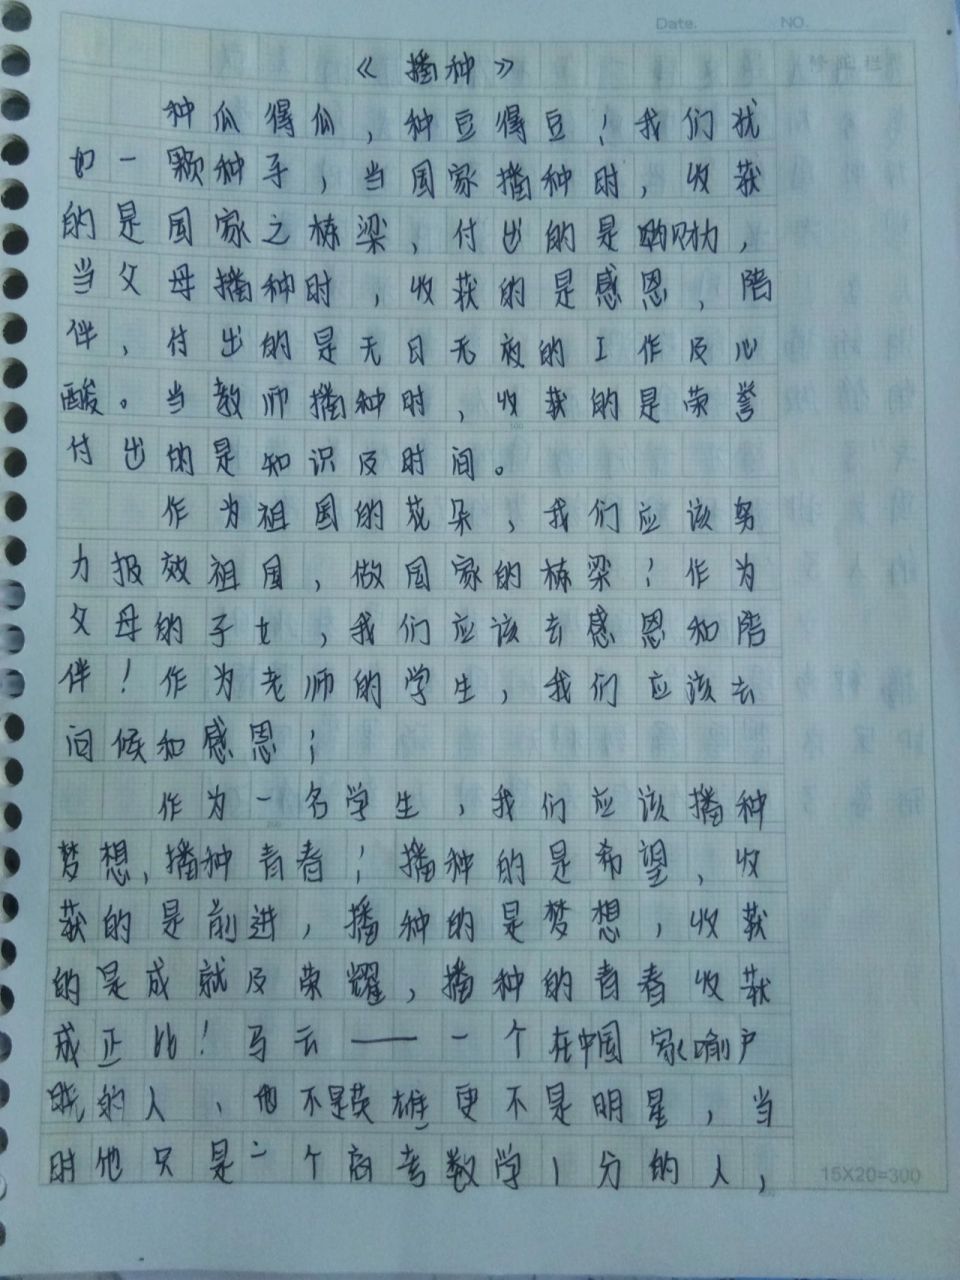 Date. NO.
《播种》
种瓜得瓜，种豆得豆！我们犹
如一颗种子，当国家播种时，收获
的是国家之栋梁，付出的是财力，
当父母播种时，收获的是感恩、陪
伴、付出的是无日无夜的工作及心
酸。当教师播种时，收获的是荣誉
付出的是知识及时间。
作为祖国的花朵，我们应该努
力报效祖国，做国家的栋梁！作为
父母的子女，我们应该去感恩和陪
伴！作为老师的学生，我们应该去
问候和感恩；
作为一名学生，我们应该播种
梦想，播种青春！播种的是希望，收
获的是前进，播种的是梦想，收获
的是成就及荣耀，播种的青春收获
成正比！马云——一个在中国家喻户
晓的人、他不是英雄更不是明星，当
时他只是一个高考数学1分的人，
15X20=300